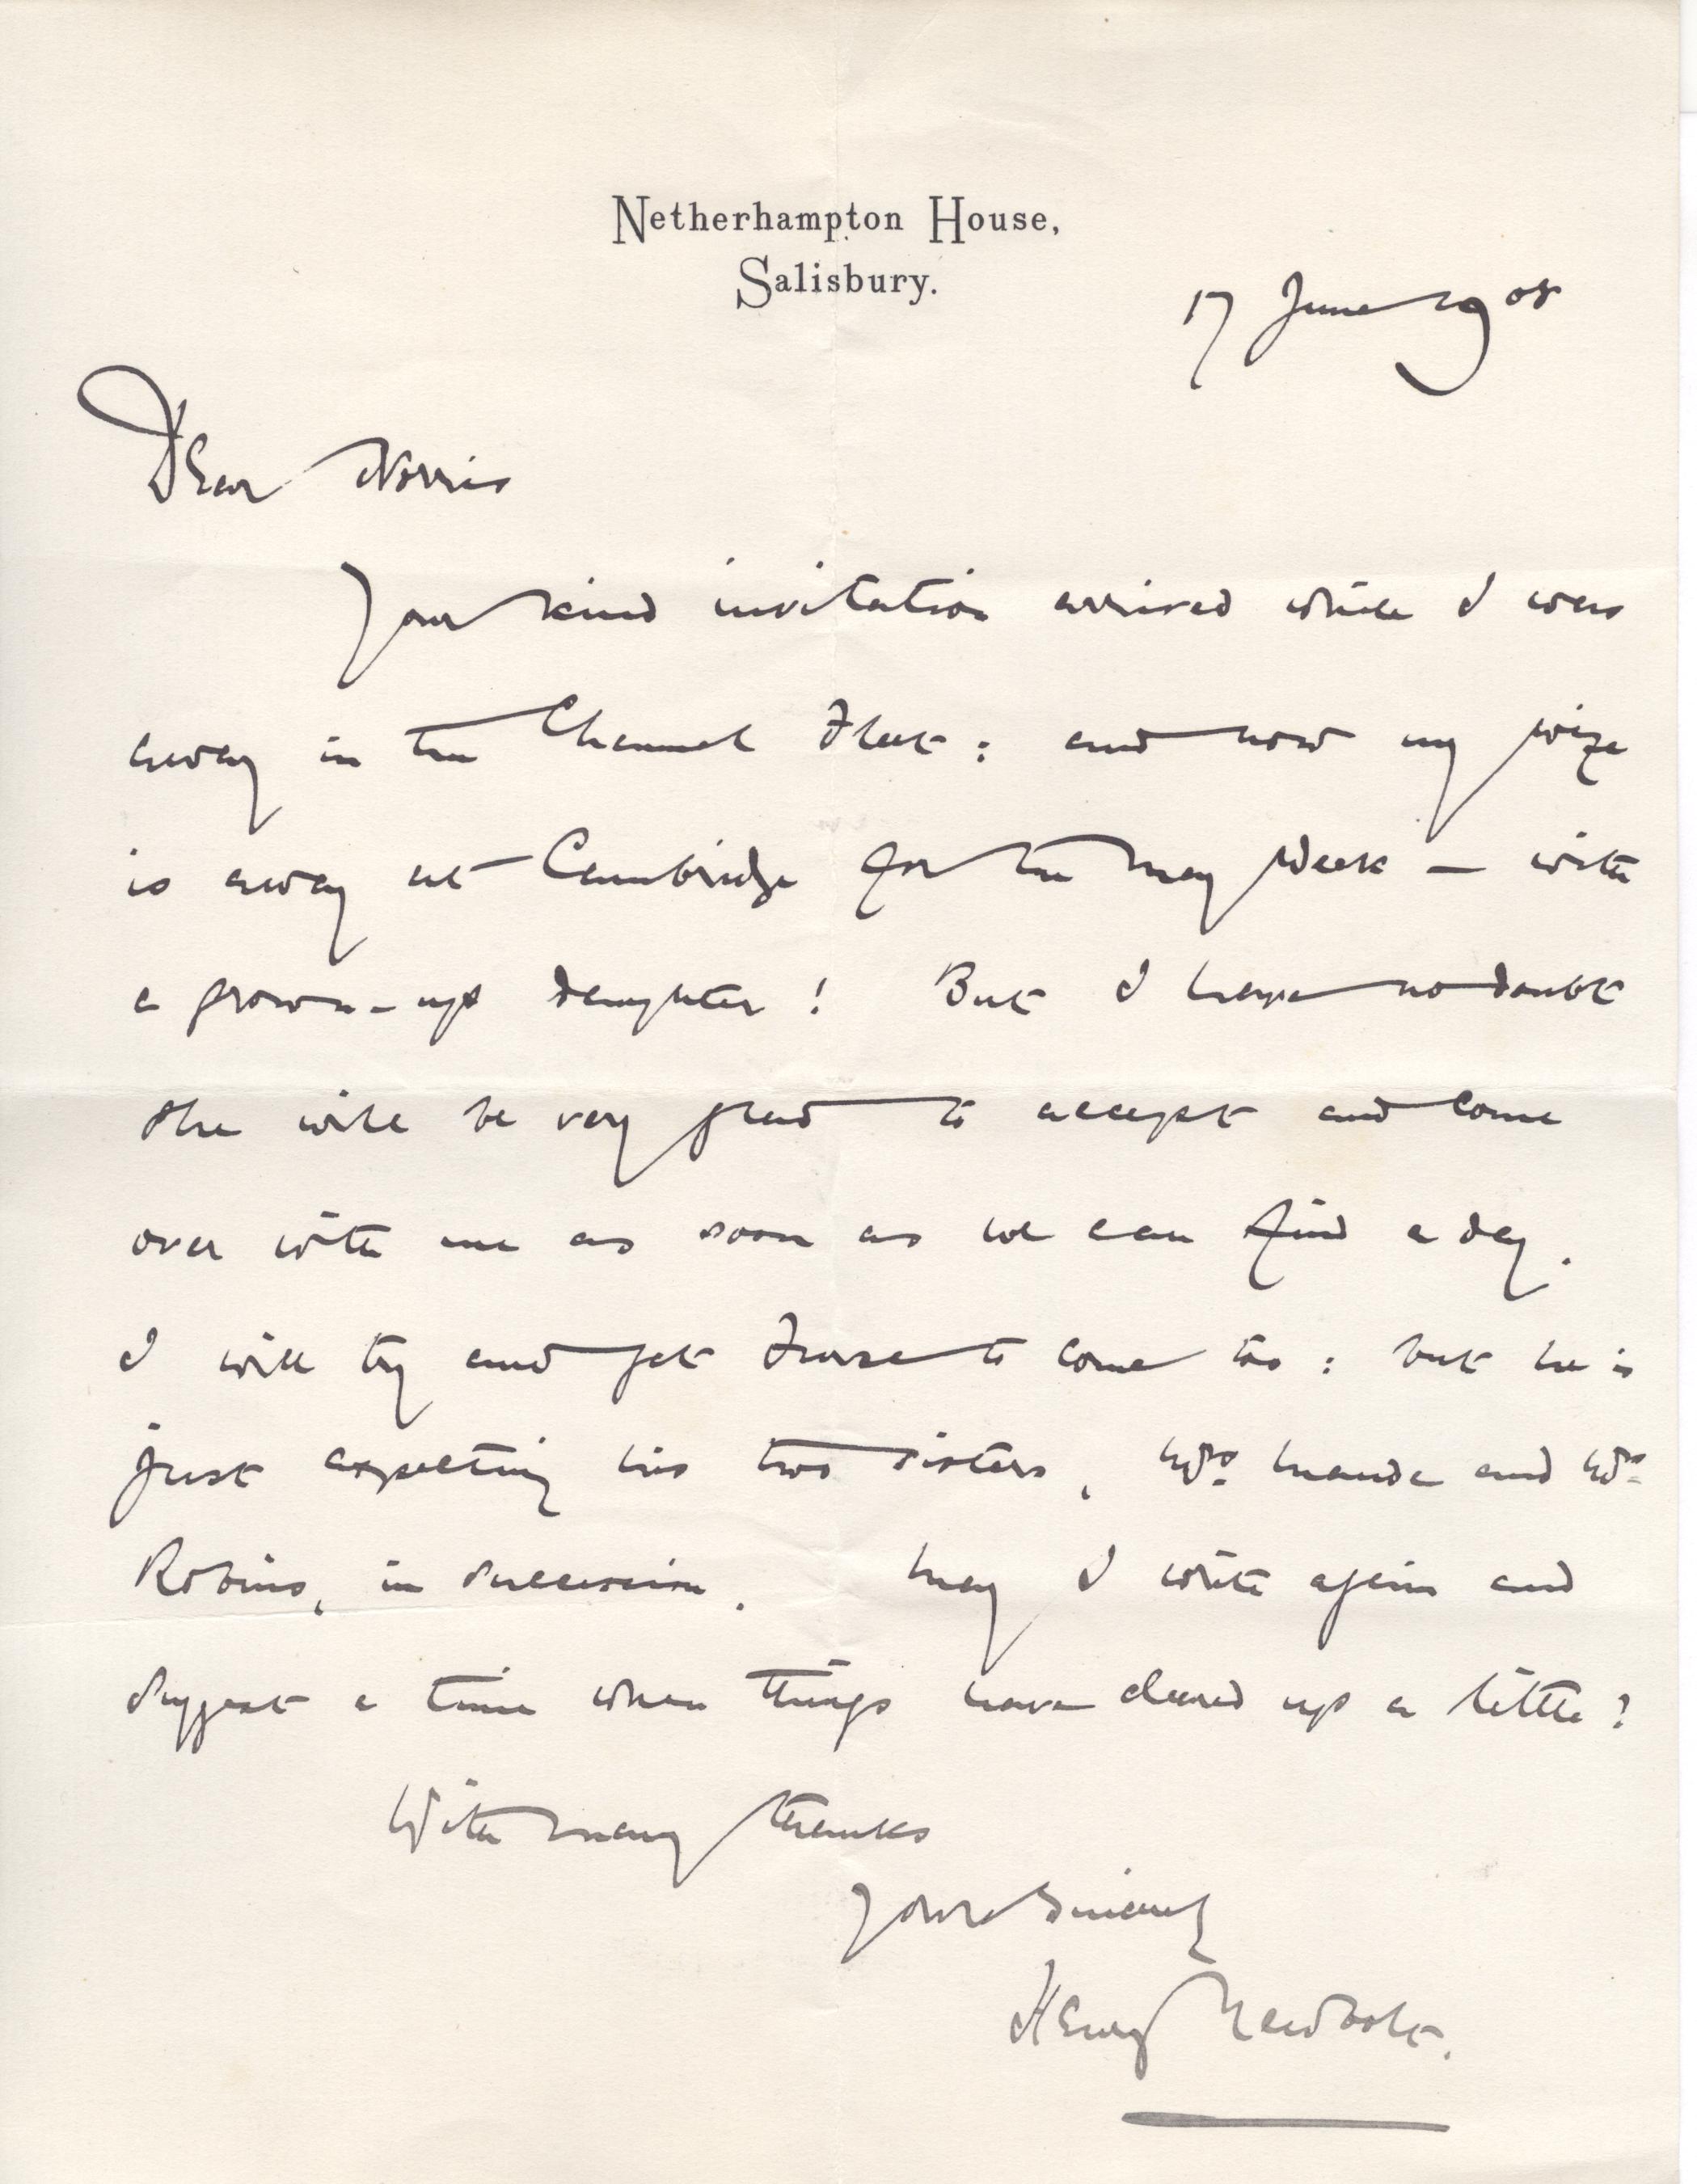 Netherhampton House,
Salisbury.
17 June 1908
Dear Norris
Your kind invitation arrived while I was
away in the Channel Fleet: and now my wife
is away at Cambridge for the May Week — with
a grown-up daughter! But I have no doubt
she will be very glad to accept and come
over with me as soon as we can find a day.
I will try and get Furse to come too: but he is
just expecting his two sisters, Mrs. Maude and Mrs.
Robins, in succession. May I write again and
suggest a time when things have cleared up a little?
With many thanks
Yours sincerely
Henry Newbolt.